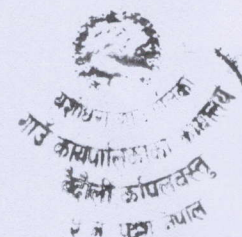 यशोधरा गाउँपालिका
गाउँ कार्यपालिकाको कार्यालय
बेदौली कपिलवस्तु
प्रदेश नेपाल